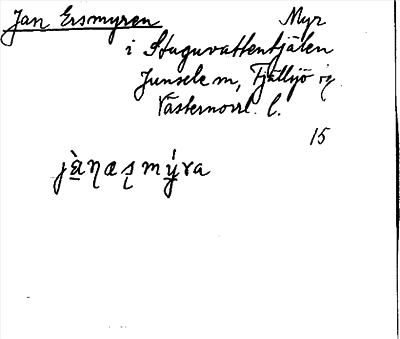 Jan Ersmyren Myr
i Stuguvattentjälen
Junsele m, Fjällsjö
Västernorrl. l.
15